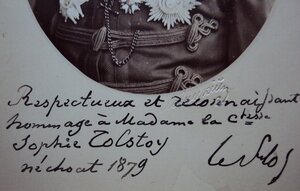 Respectueux et reconnaissant
hommage à Madame la Ctesse
Sophie Tolstoy
1879